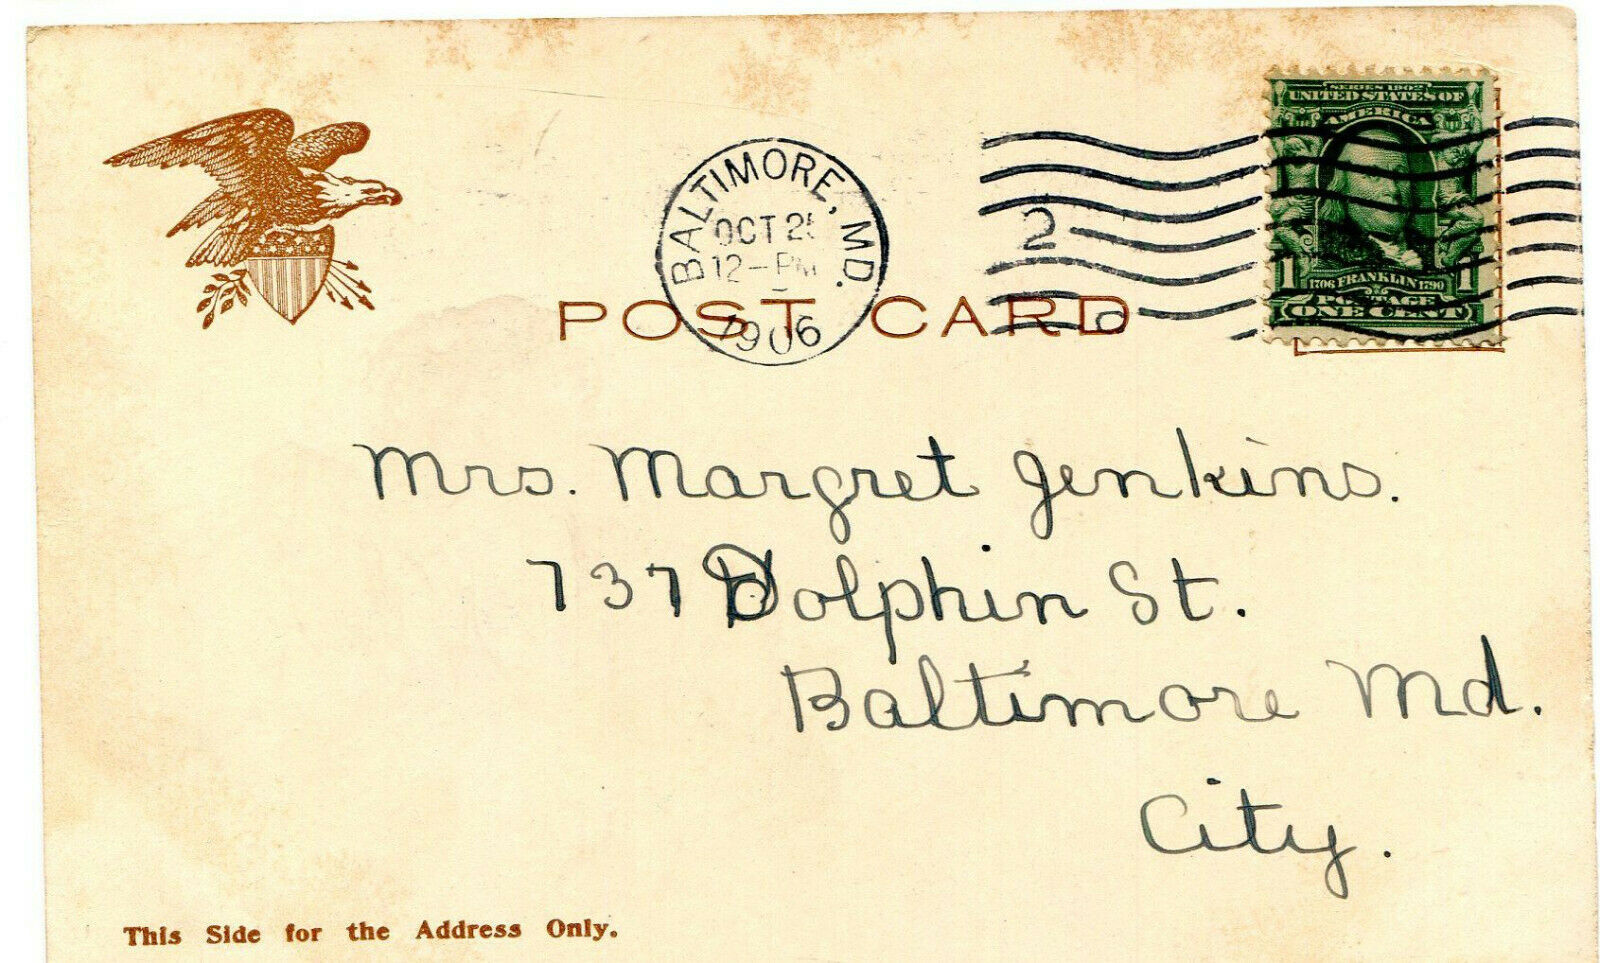 SERIES 1902
UNITED STATES OF
AMERICA
1 1706 FRANKLIN 1790 1
POSTAGE
ONE CENT
BALTIMORE, MD.
OCT 25
12-PM
1906
2
POST CARD
Mrs. Margret Jenkins.
737 Dolphin St.
Baltimore Md.
City.
This Side for the Address Only.